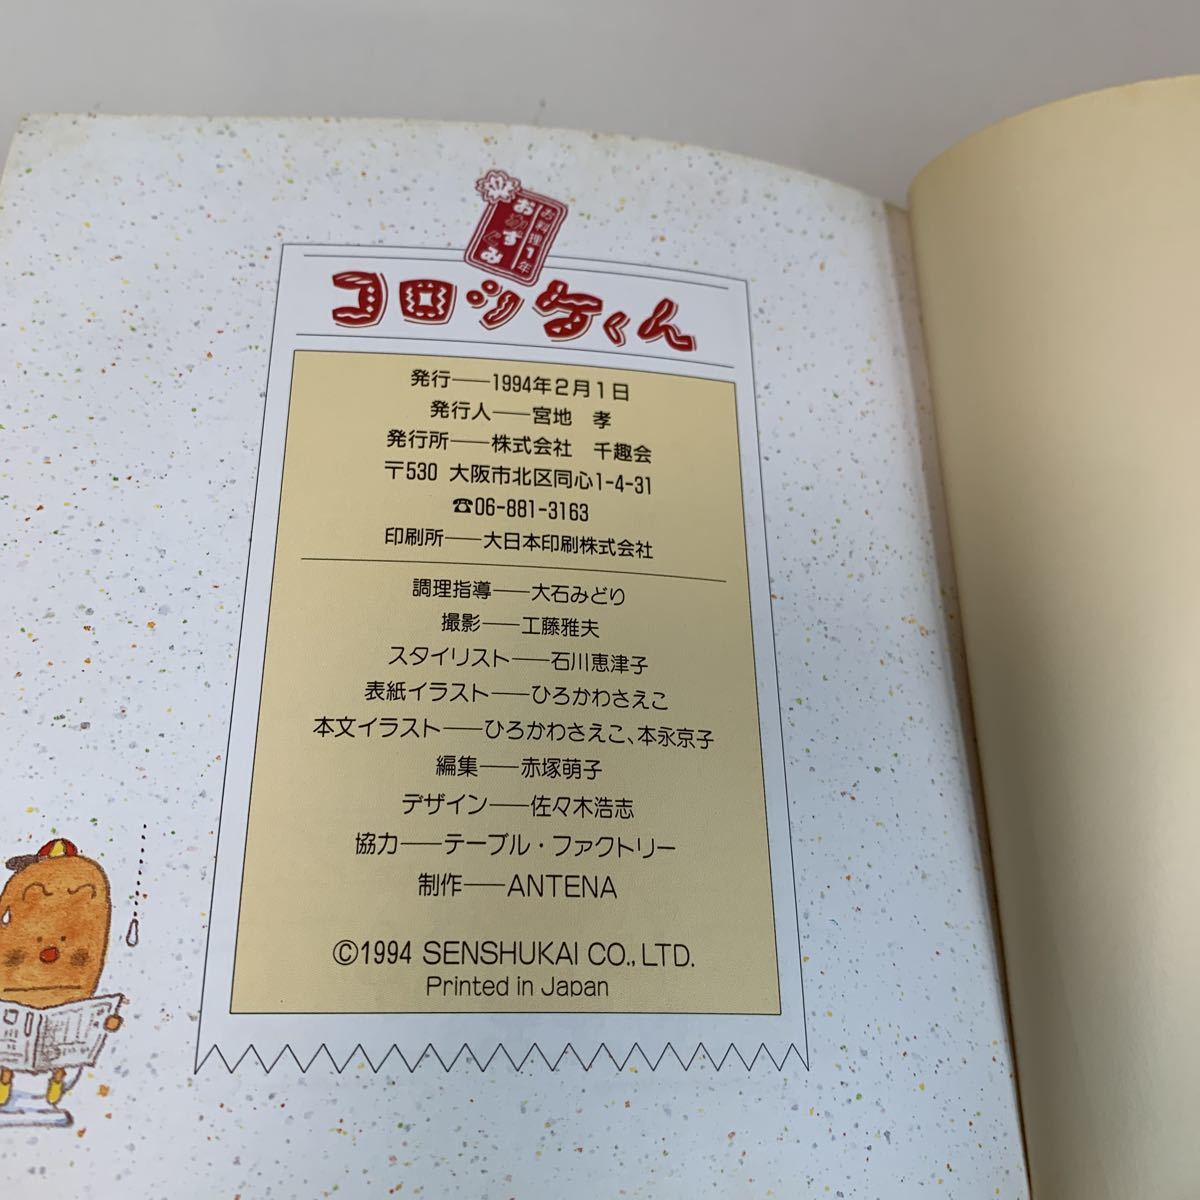 お料理1年
おかずぐみ
コロッケくん
発行──1994年2月1日
発行人──宮地 孝
発行所──株式会社 千趣会
〒530 大阪市北区同心1-4-31
☎06-881-3163
印刷所──大日本印刷株式会社
調理指導──大石みどり
撮影──工藤雅夫
スタイリスト──石川恵津子
表紙イラスト──ひろかわさえこ
本文イラスト──ひろかわさえこ、本永京子
編集──赤塚萌子
デザイン──佐々木浩志
協力──テーブル・ファクトリー
制作──ANTENA
©1994 SENSHUKAI CO., LTD.
Printed in Japan